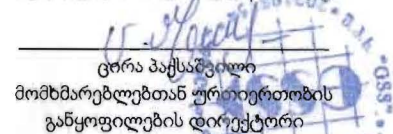 ცირა პაქსაშვილი
მომხმარებლებთან ურთიერთობის
განყოფილების დირექტორი
"GSS"
GSS